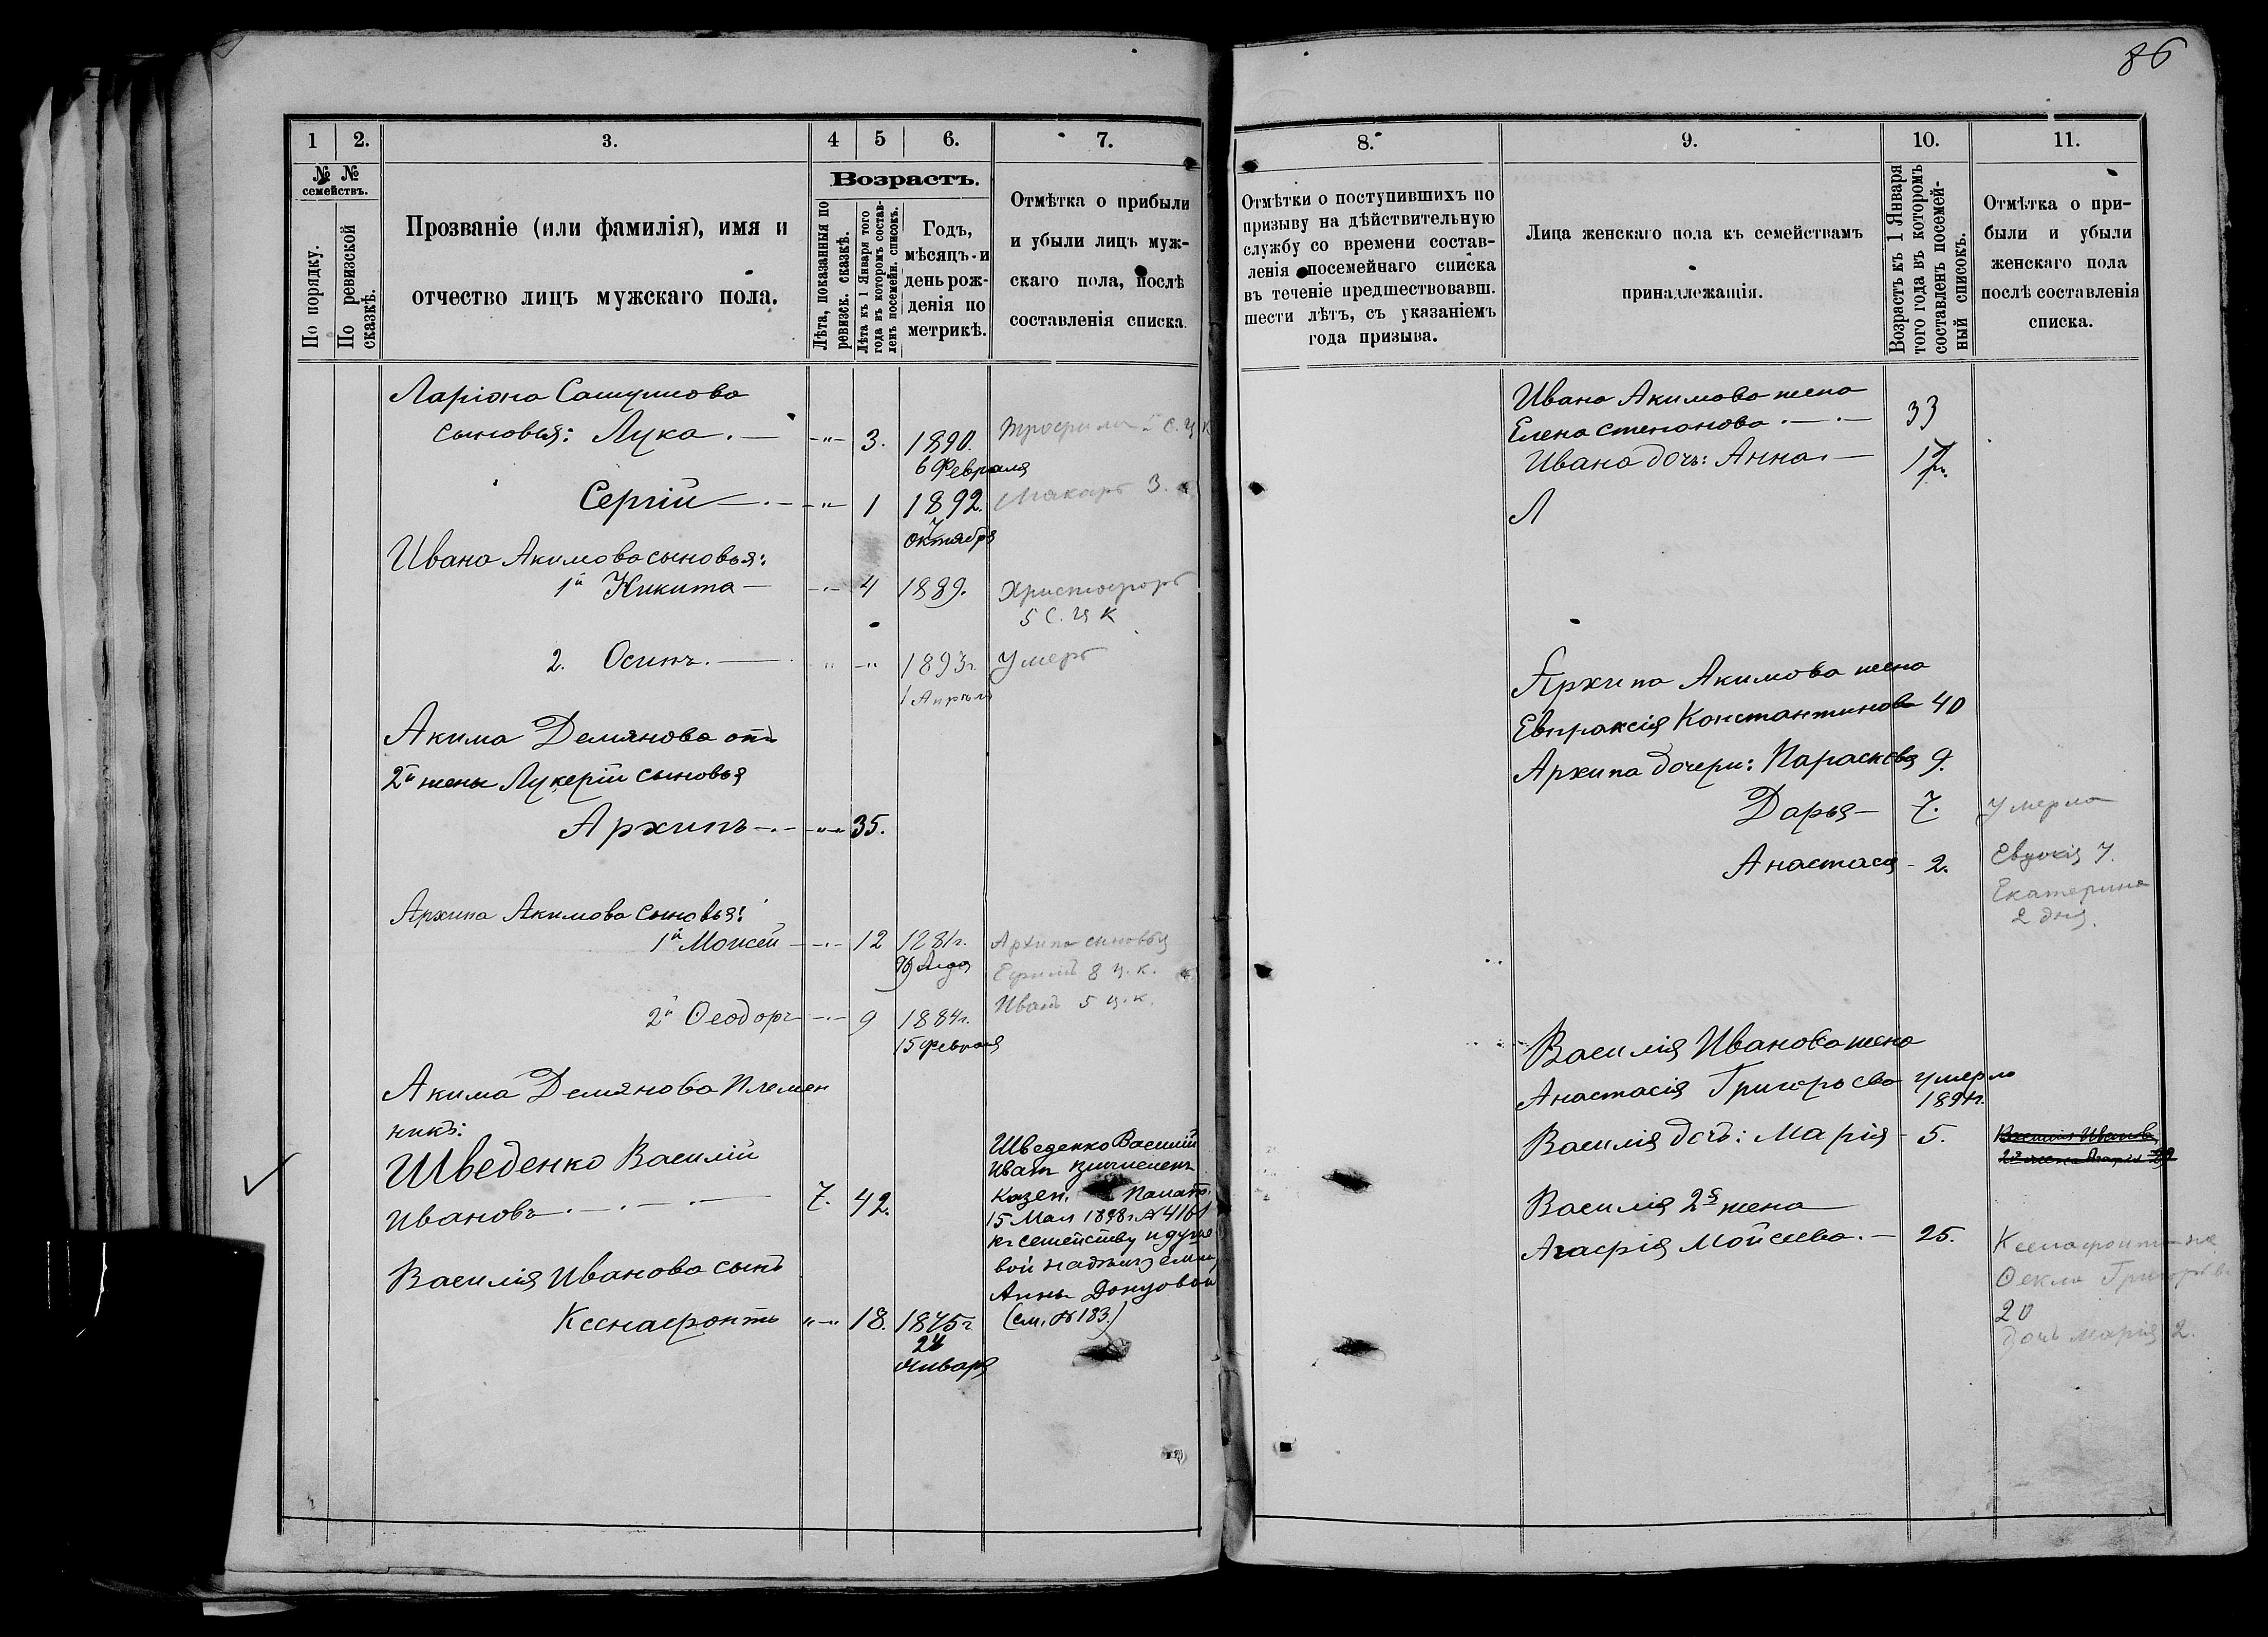 86
1
2.
3.
4
5
6.
7.
№ №
семействъ.
По порядку.
По ревизской
сказкѣ.
Прозваніе (или фамилія), имя и
отчество лицъ мужскаго пола.
Возрастъ.
Лѣта, показанныя по
ревизск. сказкѣ.
Лѣта къ 1 Января того
года въ которомъ состав-
ленъ посемейн. списокъ.
Годъ,
мѣсяцъ и
день рож-
денія по
метрикѣ.
Отмѣтка о прибыли
и убыли лицъ муж-
скаго пола, послѣ
составленія списка.
Ларіона
сыновья: Лука. — -"- 3. 1890.
6 Февраля
Сергій — -"- 1 1892. Макаръ 3.
7
октября
Ивана Акимова сыновья:
1й Никита — -"- 4 1889. Христофоръ
5 с. ц к
2. Осипъ. — " -" 1893г. Умеръ
1 Апрѣля
Акима Демянова отъ
2й жены Лукеріи сыновья
Архипъ -.- -"- 35.
Архипа Акимова сыновья:
1й Моисей -.- 12 1881г. Архипа сыновья
Ефимъ 8 ц. к.
2й Ѳеодоръ -.- 9 1884г. Иванъ 5 ц. к.
15 Февраля
Акима Демянова Племен
никъ:
Шведенко Василій
Ивановъ. — . — 7. 42.
Шведенко Василій
Иван
Казен. Палат.
15 Мая 1898 г. № 4161
къ семейству и душе
вой надѣлъ земли
Анны
(см. № 183.)
Василія Иванова сынъ
Ксенафонтъ "-" 18. 1875г.
24
Января
8.
9.
10.
11.
Отмѣтки о поступившихъ по
призыву на дѣйствительную
службу со времени состав-
ленія посемейнаго списка
въ теченіе предшествовавш.
шести лѣтъ, съ указаніемъ
года призыва.
Лица женскаго пола къ семействамъ
принадлежащія.
Возрастъ къ 1 Января
того года въ которомъ
составленъ посемей-
ный списокъ.
Отмѣтка о при-
были и убыли
женскаго пола
послѣ составленія
списка.
Ивана Акимова жена
Елена Степанова. — 33
Ивана дочь: Анна. —
Л
Архипа Акимова жена
Евпраксія Константинова 40
Архипа дочери: Параскева 9.
Дарья — 7. Умерла
Анастасія - 2. Евдокія 7.
Екатерина
2 дня.
Василія Иванова жена
Анастасія Григорьева умерла
189 г.
Василія дочь: Марія - 5. Василія Иванова
2я жена
Василія 2я жена
Агафія Мойсеева. — 25. Ксенафонта жена
Ѳекла Григорьева
20
дочь Марія 2.